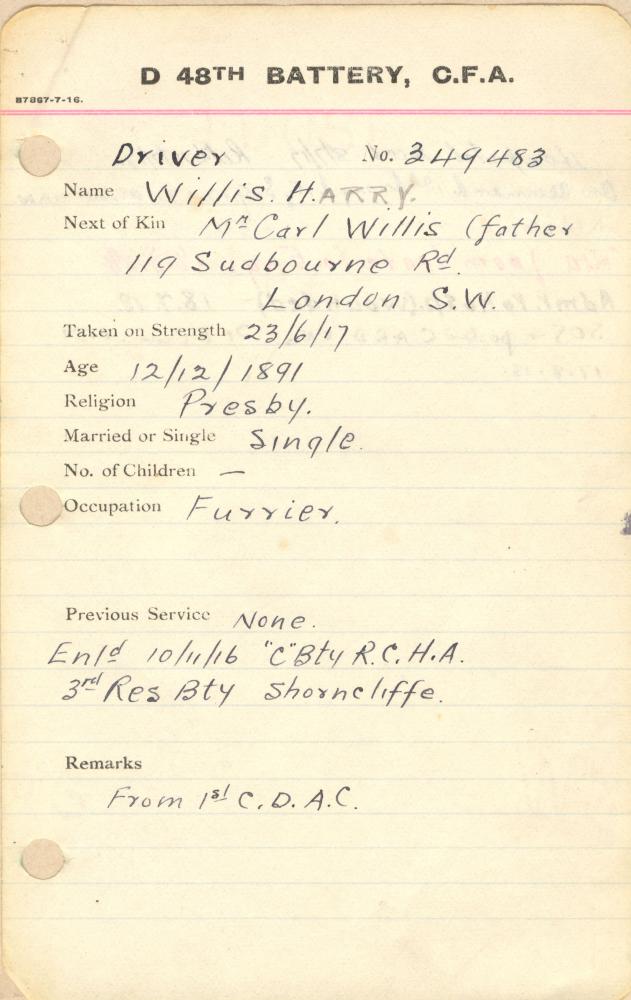 D 48TH BATTERY, C.F.A.
B7867-7-16.
Driver No. 349483
Name Willis. HARRY.
Next of Kin Mr Carl Willis (father
119 Sudbourne Rd.
London S.W.
Taken on Strength 23/6/17
Age 12/12/1891
Religion Presby.
Married or Single Single.
No. of Children —
Occupation Furrier.
Previous Service None.
Enld 10/11/16 "C" Bty R.C.H.A.
3rd Res Bty Shorncliffe.
Remarks
From 1st C.D.A.C.